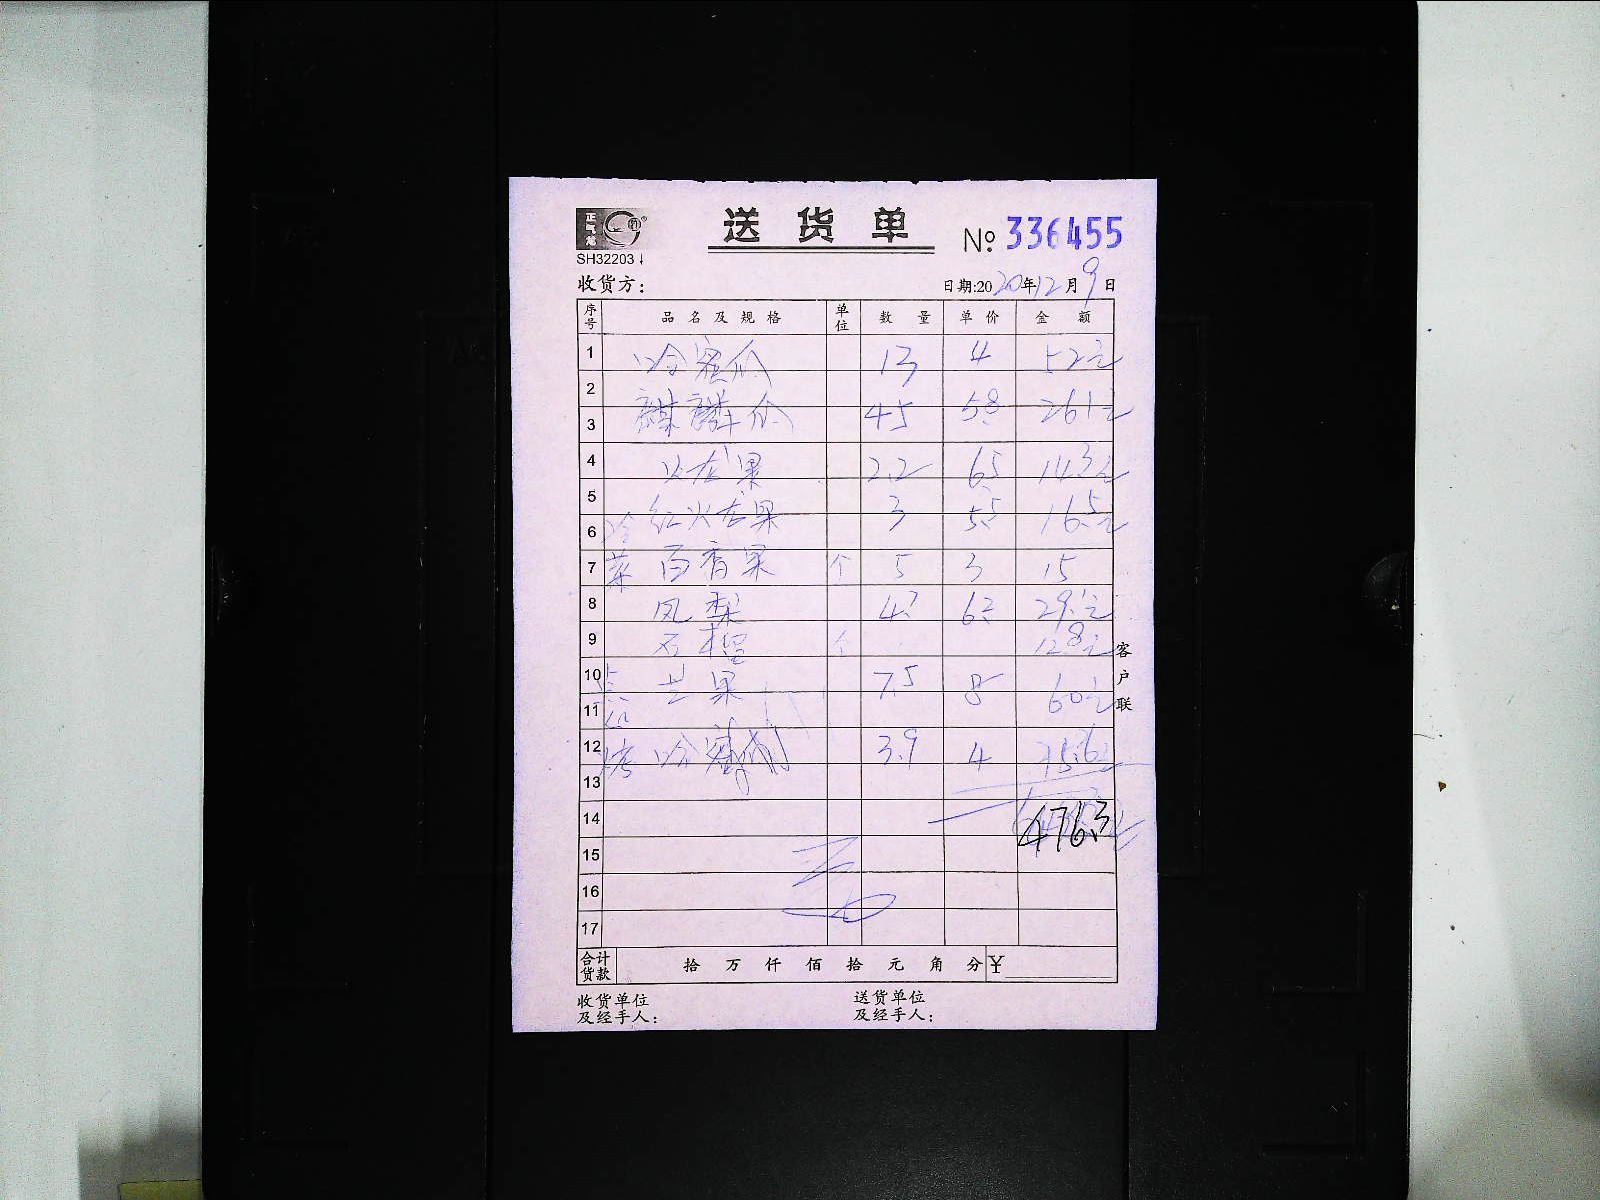 送 货 单
№ 336455
SH32203
收货方：
日期:2020年12月9日
序号 品名及规格 单位 数量 单价 金额
1 哈密瓜 13 4 52元
2
3 麒麟瓜 45 5.8 261元
4 火龙果 2.2 6.5 14.3元
5 红火龙果 3 5.5 16.5元
6 冷
7 菜 百香果 个 5 3 15
8 凤梨 4.7 6.2 29.1元
9 石榴 个 12.8元
10 芒果 7.5 8 60元
11
12 烤 哈蜜瓜 3.9 4 15.6元
13
14 476.3
15
16
17
合计货款 拾 万 仟 佰 拾 元 角 分 ¥
客户联
收货单位及经手人：
送货单位及经手人：